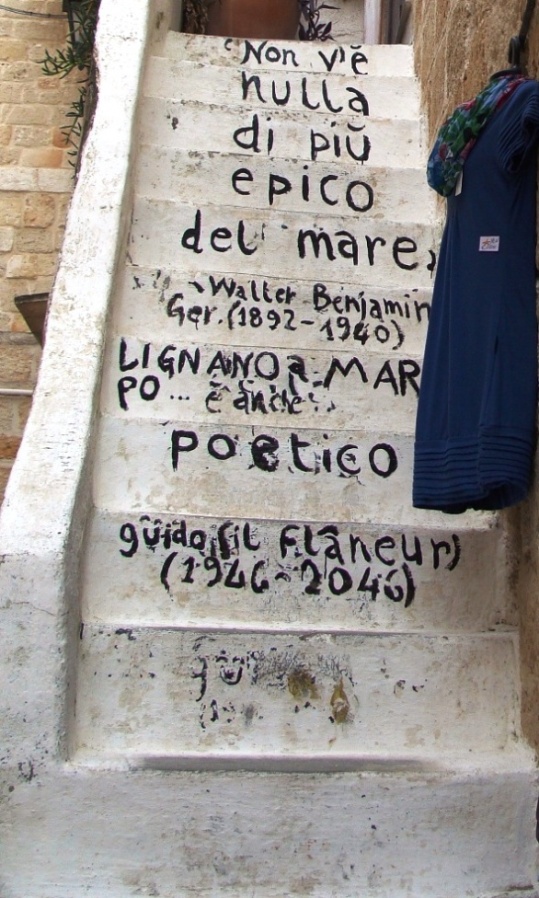 "Non v'ĕ
nulla
di piŭ
epico
del mare,
Walter Benjamin
Ger. (1892-1940)
LIGNANO a MAR
PO... ê anche
poetico
guido (il Flâneur)
(1946-2046)